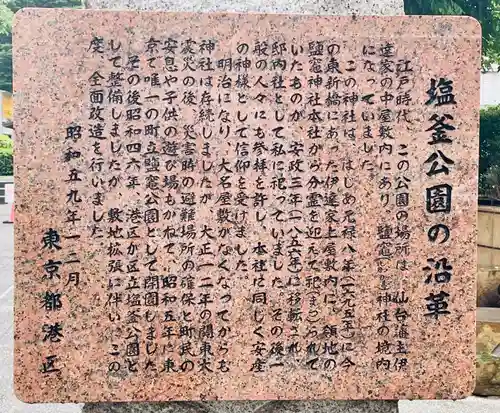 塩釜公園の沿革
江戸時代、この公園の場所は、仙台藩主伊
達家の中屋敷内にあり、鹽竈神社の境内
になっていました。
この神社は、はじめ元禄八年(一六九五年)に今
の東新橋にあった伊達家上屋敷内に、領地の
鹽竈神社本社から分霊を迎えて祀まつられて
いたものが、安政三年(一八五六年)に移転され、
邸内社として私に祀っていました。その後一
般の人々にも参拝を許し、本社に同じく安産
の神様として信仰を受けました。
明治になり、大名屋敷がなくなってからも
神社は存続しましたが、大正一二年の関東大
震災の後、災害時の避難場所の確保と町民の
安息や子供の遊び場もかねて、昭和五年に東
京で唯一の町立鹽竈公園として開園しました。
その後昭和四六年、港区が区立塩釜公園と
して整備しましたが、敷地拡張に伴い、この
度、全面改造を行いました。
昭和五九年一二月
東京都港区